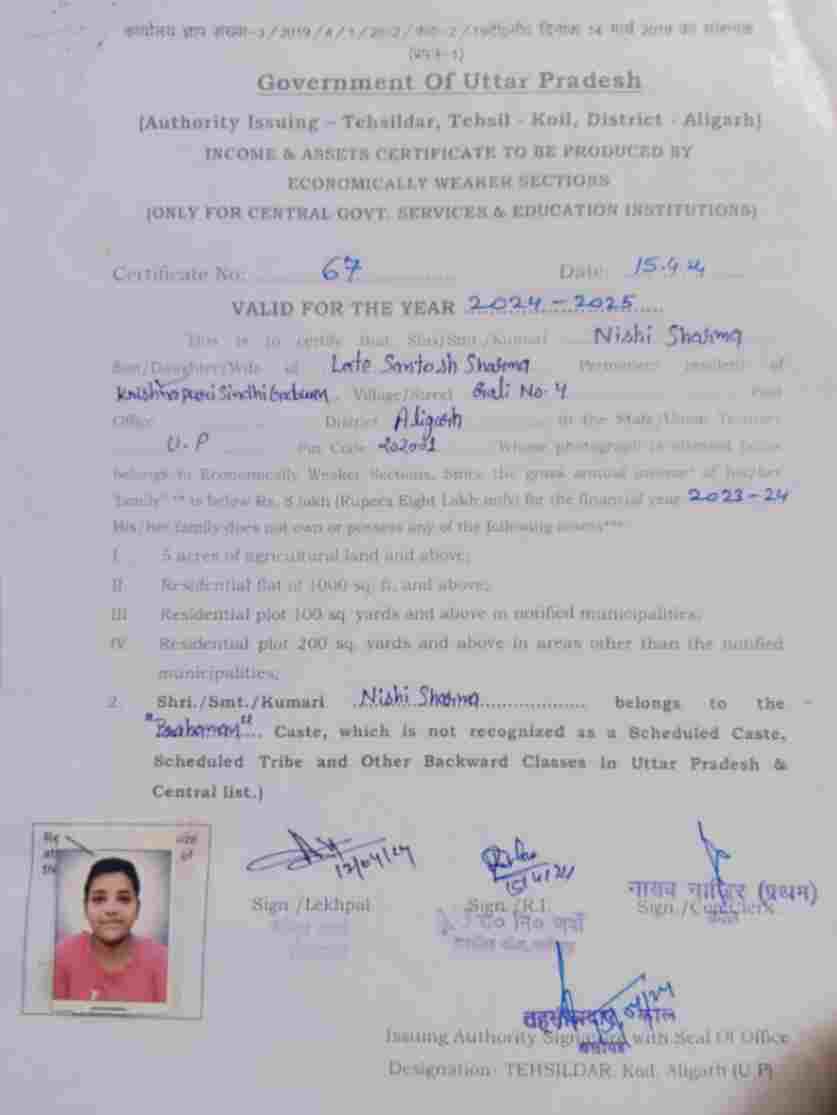 कार्यालय ज्ञाप संख्या-3/2019/4/1/2002/का0-2/19टी0सी0 दिनांक 14 मार्च 2019 का संलग्नक
Government Of Uttar Pradesh
(Authority Issuing - Tehsildar, Tehsil - Koil, District - Aligarh)
INCOME & ASSETS CERTIFICATE TO BE PRODUCED BY
ECONOMICALLY WEAKER SECTIONS
(ONLY FOR CENTRAL GOVT. SERVICES & EDUCATION INSTITUTIONS)
Certificate No: 67 Date: 15.4.24
VALID FOR THE YEAR 2024-2025
This is to certify that Shri/Smt./Kumari Nishi Sharma
Son/Daughter/Wife of Late Santosh Sharma Permanent resident of
Krishna puri Sindhi Village/Street Gali No. 4 Post
Office District Aligarh in the State/Union Territory
U.P Pin Code 202001 Whose photograph is attested below
belongs to Economically Weaker Sections, Since the gross annual income* of his/her
'family'** is below Rs. 8 lakh (Rupees Eight Lakh only) for the financial year 2023-24
His/her family does not own or possess any of the following assets***
I 5 acres of agricultural land and above;
II Residential flat of 1000 sq. ft. and above;
III Residential plot 100 sq. yards and above in notified municipalities;
IV Residential plot 200 sq. yards and above in areas other than the notified
municipalities;
2 Shri./Smt./Kumari Nishi Sharma belongs to the
"Brahaman" Caste, which is not recognized as a Scheduled Caste,
Scheduled Tribe and Other Backward Classes in Uttar Pradesh &
Central list.)
12/04/24
15/4/24
Sign./Lekhpal Sign./R.I. Sign./
नायब नाजिर (प्रथम)
Issuing Authority Signature with Seal Of Office
Designation- TEHSILDAR, Koil, Aligarh (U.P)